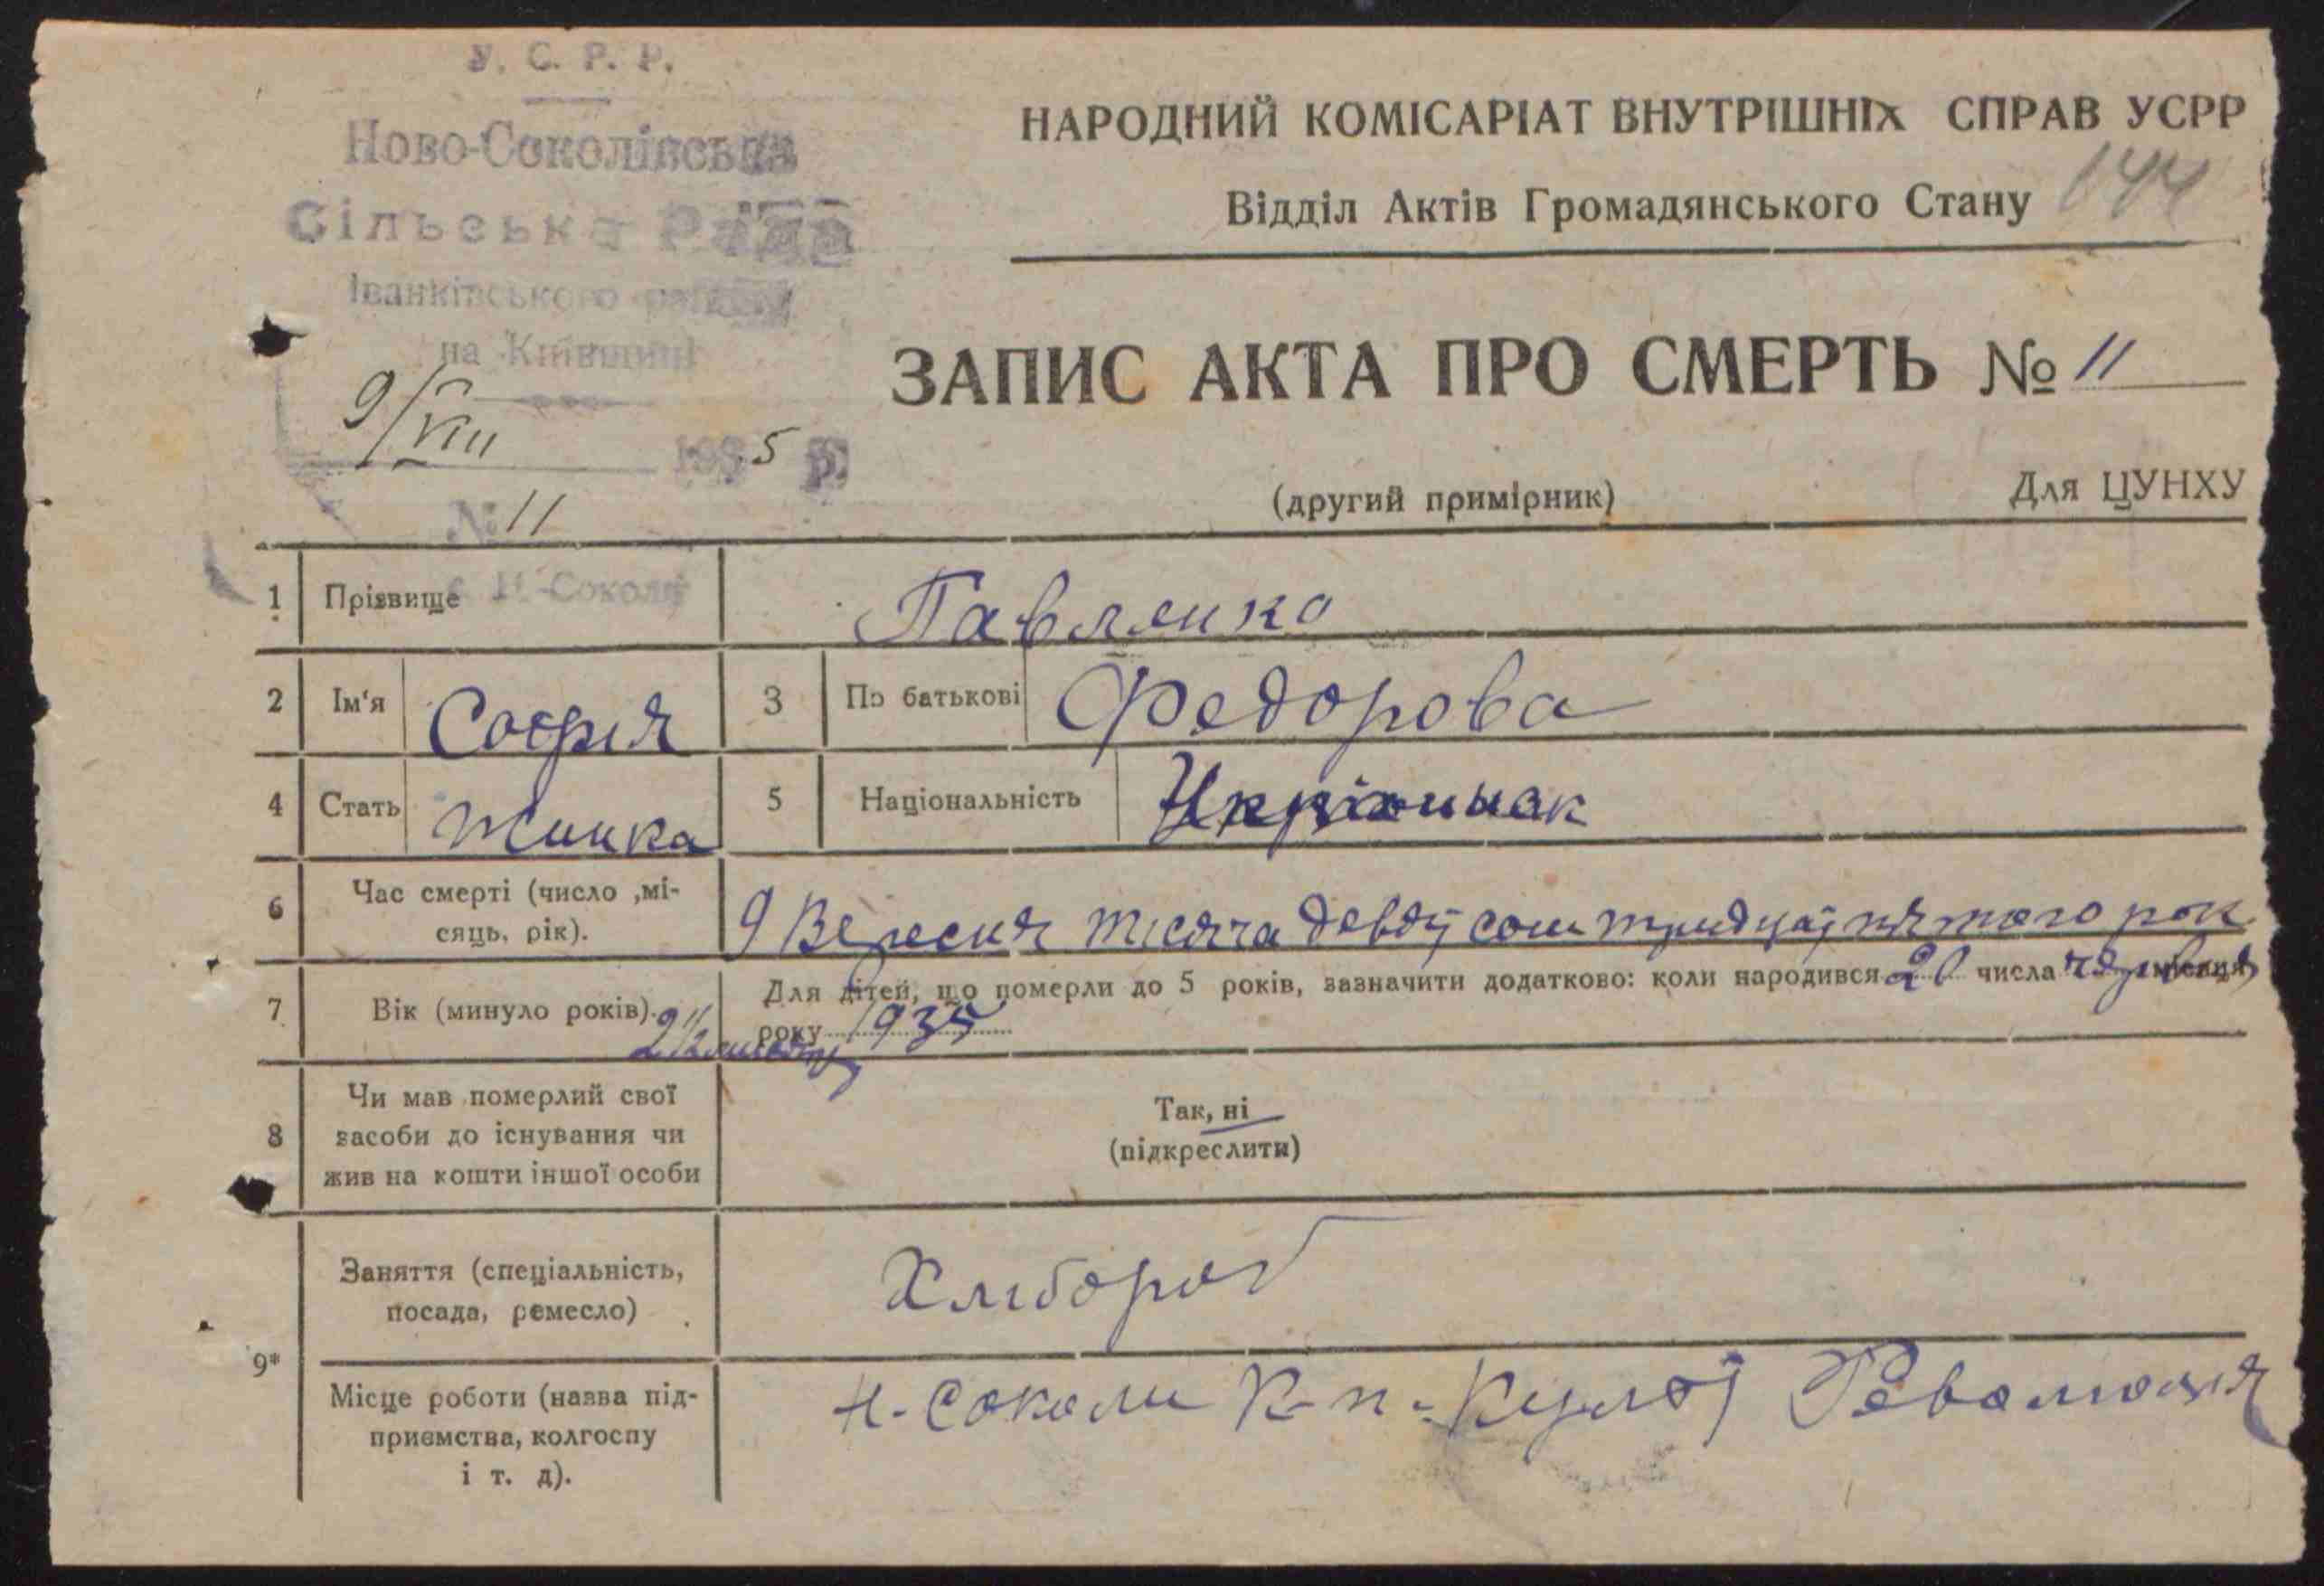 У. С. Р. Р.
Ново-Соколівська
Сільська Рада
Іванківського району
на Київщині
9/VIII 1935 р.
№ 11
с. Н-Соколи
НАРОДНИЙ КОМІСАРІАТ ВНУТРІШНІХ СПРАВ УСРР
Відділ Актів Громадянського Стану 144
ЗАПИС АКТА ПРО СМЕРТЬ № 11
(другий примірник) Для ЦУНХУ
1 Прізвище Павленко
2 Ім'я Софія 3 По батькові Федорова
4 Стать Жинка 5 Національність
6 Час смерті (число ,мі-
сяць, рік). 9 Вересня тисяча девят сот тридцят пятого рок
7 Вік (минуло років). 2 1/2 Для дітей, що померли до 5 років, зазначити додатково: коли народився 20 числа червня місяця
року 1935
8 Чи мав померлий свої
засоби до існування чи
жив на кошти іншої особи
Так, ні
(підкреслити)
9* Заняття (спеціальність,
посада, ремесло) Хлибороб
Місце роботи (назва під-
приємства, колгоспу
і т. д).
Н-Соколи К-п. Революция